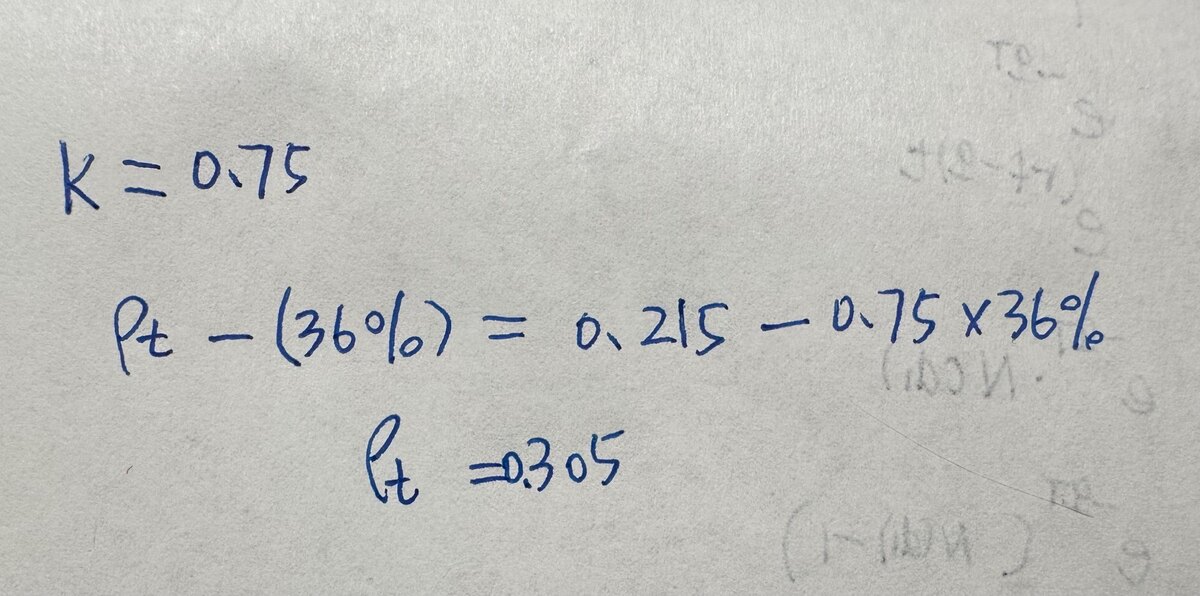 K = 0.75
ρt − (36%) = 0.215 − 0.75 × 36%
ρt = 0.305